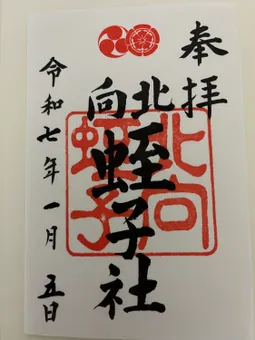 奉拝
北向
蛭子社
令和七年一月五日
北向
蛭子